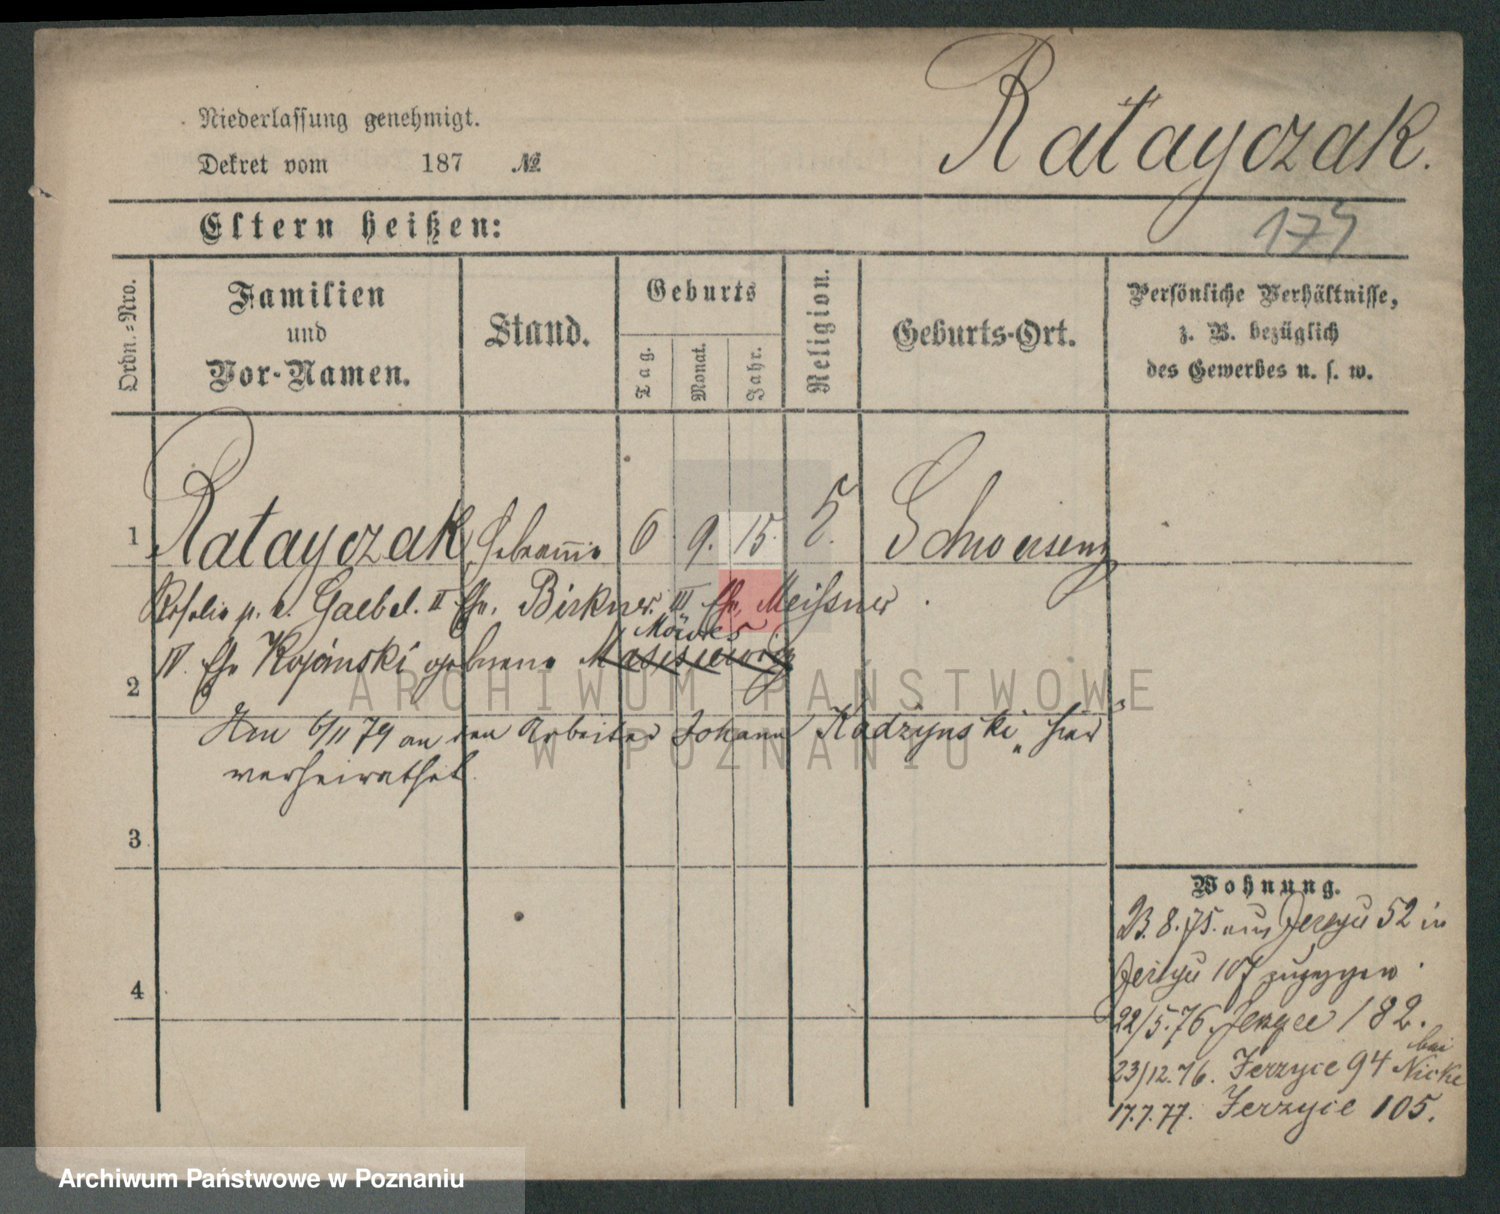 Niederlassung genehmigt.
Dekret vom 187 №
Ratayczak.
Eltern heißen:
175
Ordn.-Nro.
Familien und Vor-Namen.
Stand.
Geburts
Tag.
Monat.
Jahr.
Religion.
Geburts-Ort.
Persönliche Verhältnisse,
z. B. bezüglich
des Gewerbes u. s. w.
1 Ratayczak Hebamme 6 9. 15. Schwersenz
Rosalie Gaebel. II Ehe. Birkner. III Ehe, Meißner
Möwes
IV. Ehe Kojinski geborene
2
Am 6/11 79 an den Arbeiter Johann Kadzynski hier
verheirathet.
3
4
Wohnung.
23. 8. 75. aus Jerzyce 52 in
Jerzyce 107 zugezogen
22/5. 76 Jerzyce 182.
bei
23/12. 76. Jerzyce 94 Nicke
17. 7. 77. Jerzyce 105.
ARCHIWUM PAŃSTWOWE
W POZNANIU
Archiwum Państwowe w Poznaniu